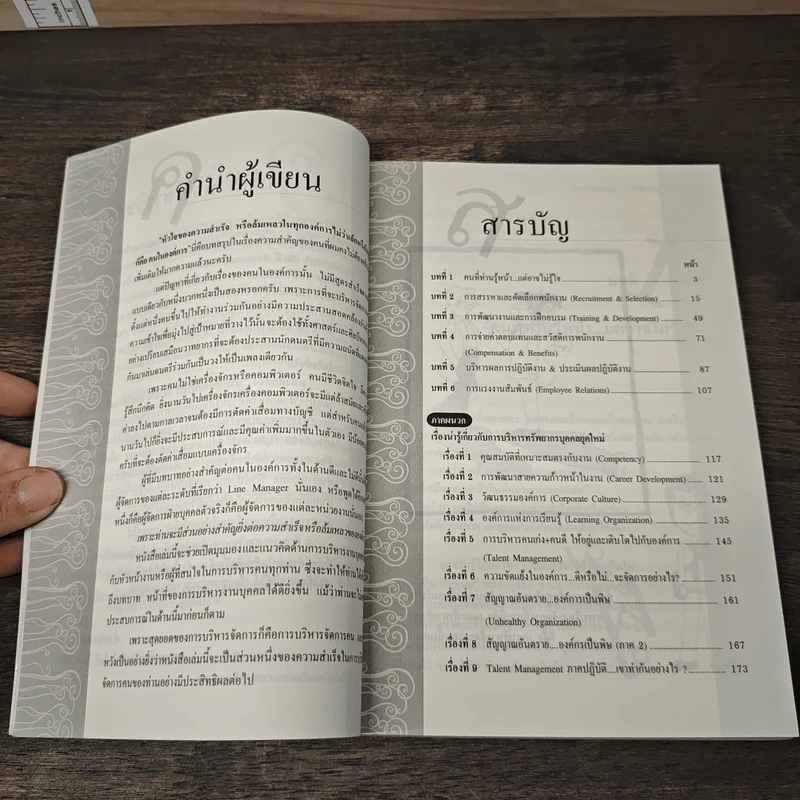 inches
1
ค
คำนำผู้เขียน
"หัวใจของความสำเร็จ หรือล้มเหลวในทุกองค์การไม่ว่าเล็กหรือ
ก็คือ คนในองค์การ" นี่คือบทสรุปในเรื่องความสำคัญของคนที่ผมคงไม่ต้อง
เพิ่มเติมให้มากความแล้วนะครับ
แต่ปัญหาที่เกี่ยวกับเรื่องของคนในองค์การนั้น ไม่มีสูตรสำเร็จ
แบบเดียวกับหนึ่งบวกหนึ่งเป็นสองหรอกครับ เพราะการที่จะบริหารจัด
ตั้งแต่หนึ่งคนขึ้นไปให้ทำงานร่วมกันอย่างมีความประสานสอดคล้อง
ความเข้าใจเพื่อมุ่งไปสู่เป้าหมายที่วางไว้นั้นจะต้องใช้ทั้งศาสตร์และศิลป์
อย่างเปรียบเสมือนวาทยากรที่จะต้องประสานนักดนตรีที่มีความถนัด
กันมาเล่นดนตรีร่วมกันเป็นวงให้เป็นเพลงเดียวกัน
เพราะคนไม่ใช่เครื่องจักรหรือคอมพิวเตอร์ คนมีชีวิตจิตใจ มี
รู้สึกนึกคิด ยิ่งนานวันไปเครื่องจักรเครื่องคอมพิวเตอร์จะมีแต่ล้าสมัยและ
ค่าลงไปตามกาลเวลาจนต้องมีการตัดค่าเสื่อมทางบัญชี แต่สำหรับคน
นานวันไปก็ยิ่งจะมีประสบการณ์และมีคุณค่าเพิ่มมากขึ้นในตัวเอง
ครับที่จะต้องตัดค่าเสื่อมแบบเครื่องจักร
ผู้ที่มีบทบาทอย่างสำคัญต่อคนในองค์การทั้งในด้านดีและไม่ดีนั้น
ผู้จัดการของแต่ละระดับที่เรียกว่า Line Manager นั่นเอง หรือพูดได้
หนึ่งก็คือผู้จัดการฝ่ายบุคคลตัวจริงก็คือผู้จัดการของแต่ละหน่วยงานนั่น
เพราะท่านจะมีส่วนอย่างสำคัญยิ่งต่อความสำเร็จหรือล้มเหลวของ
หนังสือเล่มนี้จะช่วยเปิดมุมมองและแนวคิดด้านการบริหารงานบุคคล
กับหัวหน้างานหรือผู้ที่สนใจในการบริหารคนทุกท่าน ซึ่งจะทำให้ท่าน
ถึงบทบาท หน้าที่ของการบริหารงานบุคคลได้ดียิ่งขึ้น แม้ว่าท่านจะไม่
ประสบการณ์ในด้านนี้มาก่อนก็ตาม
เพราะสุดยอดของการบริหารจัดการก็คือการบริหารจัดการคน
หวังเป็นอย่างยิ่งว่าหนังสือเล่มนี้จะเป็นส่วนหนึ่งของความสำเร็จในการ
จัดการคนของท่านอย่างมีประสิทธิผลต่อไป
ส
สารบัญ
หน้า
บทที่ 1 คนที่ท่านรู้หน้า...แต่อาจไม่รู้ใจ 3
บทที่ 2 การสรรหาและคัดเลือกพนักงาน (Recruitment & Selection) 15
บทที่ 3 การพัฒนางานและการฝึกอบรม (Training & Development) 49
บทที่ 4 การจ่ายค่าตอบแทนและสวัสดิการพนักงาน 71
(Compensation & Benefits)
บทที่ 5 บริหารผลการปฏิบัติงาน & ประเมินผลปฏิบัติงาน 87
บทที่ 6 การแรงงานสัมพันธ์ (Employee Relations) 107
ภาคผนวก
เรื่องน่ารู้เกี่ยวกับการบริหารทรัพยากรบุคคลยุคใหม่
เรื่องที่ 1 คุณสมบัติที่เหมาะสมตรงกับงาน (Competency) 117
เรื่องที่ 2 การพัฒนาสายความก้าวหน้าในงาน (Career Development) 121
เรื่องที่ 3 วัฒนธรรมองค์การ (Corporate Culture) 129
เรื่องที่ 4 องค์การแห่งการเรียนรู้ (Learning Organization) 135
เรื่องที่ 5 การบริหารคนเก่ง+คนดี ให้อยู่และเติบโตไปกับองค์การ 145
(Talent Management)
เรื่องที่ 6 ความขัดแย้งในองค์การ...ดีหรือไม่...จะจัดการอย่างไร? 151
เรื่องที่ 7 สัญญาณอันตราย...องค์การเป็นพิษ 161
(Unhealthy Organization)
เรื่องที่ 8 สัญญาณอันตราย....องค์กรเป็นพิษ (ภาค 2) 167
เรื่องที่ 9 Talent Management ภาคปฏิบัติ....เขาทำกันอย่างไร ? 173